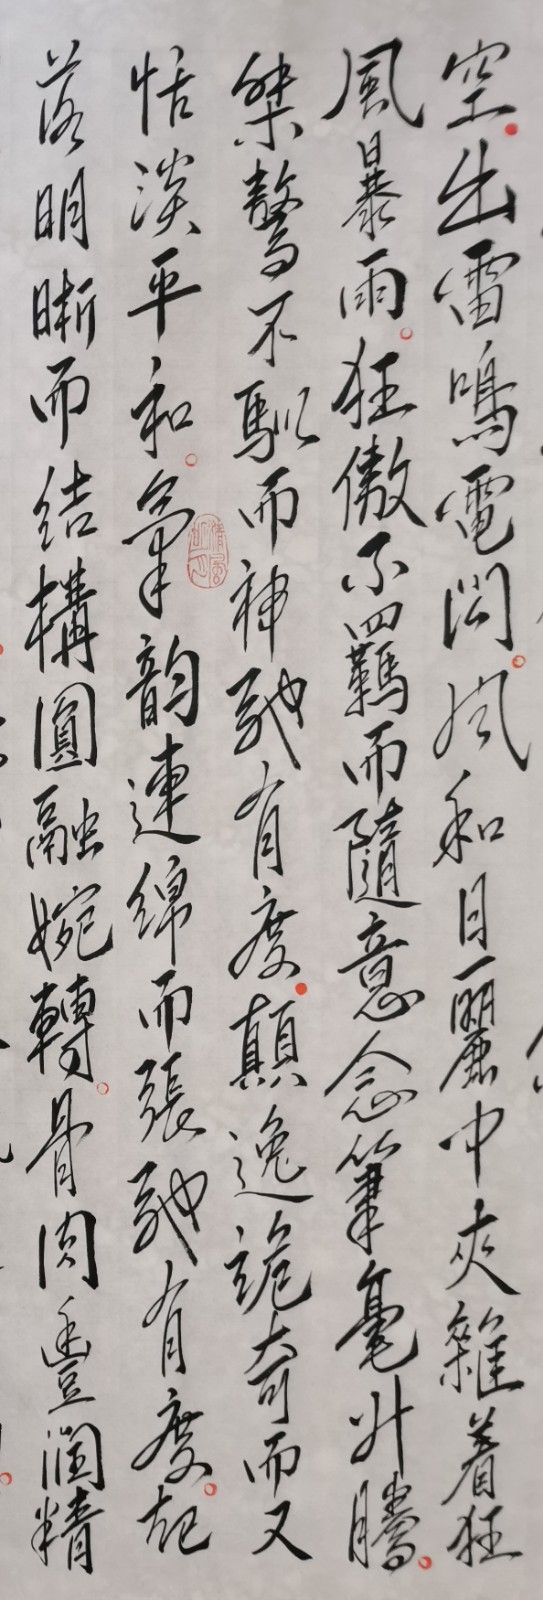 空出雷鳴電閃風和日麗中夾雜着狂
風暴雨狂傲不羈而隨意念筆毫升騰
桀驁不馴而神馳有度顛逸詭奇而又
恬淡平和氣韵連綿而張馳有度起
落明晰而結構圓融婉轉骨肉豐潤精